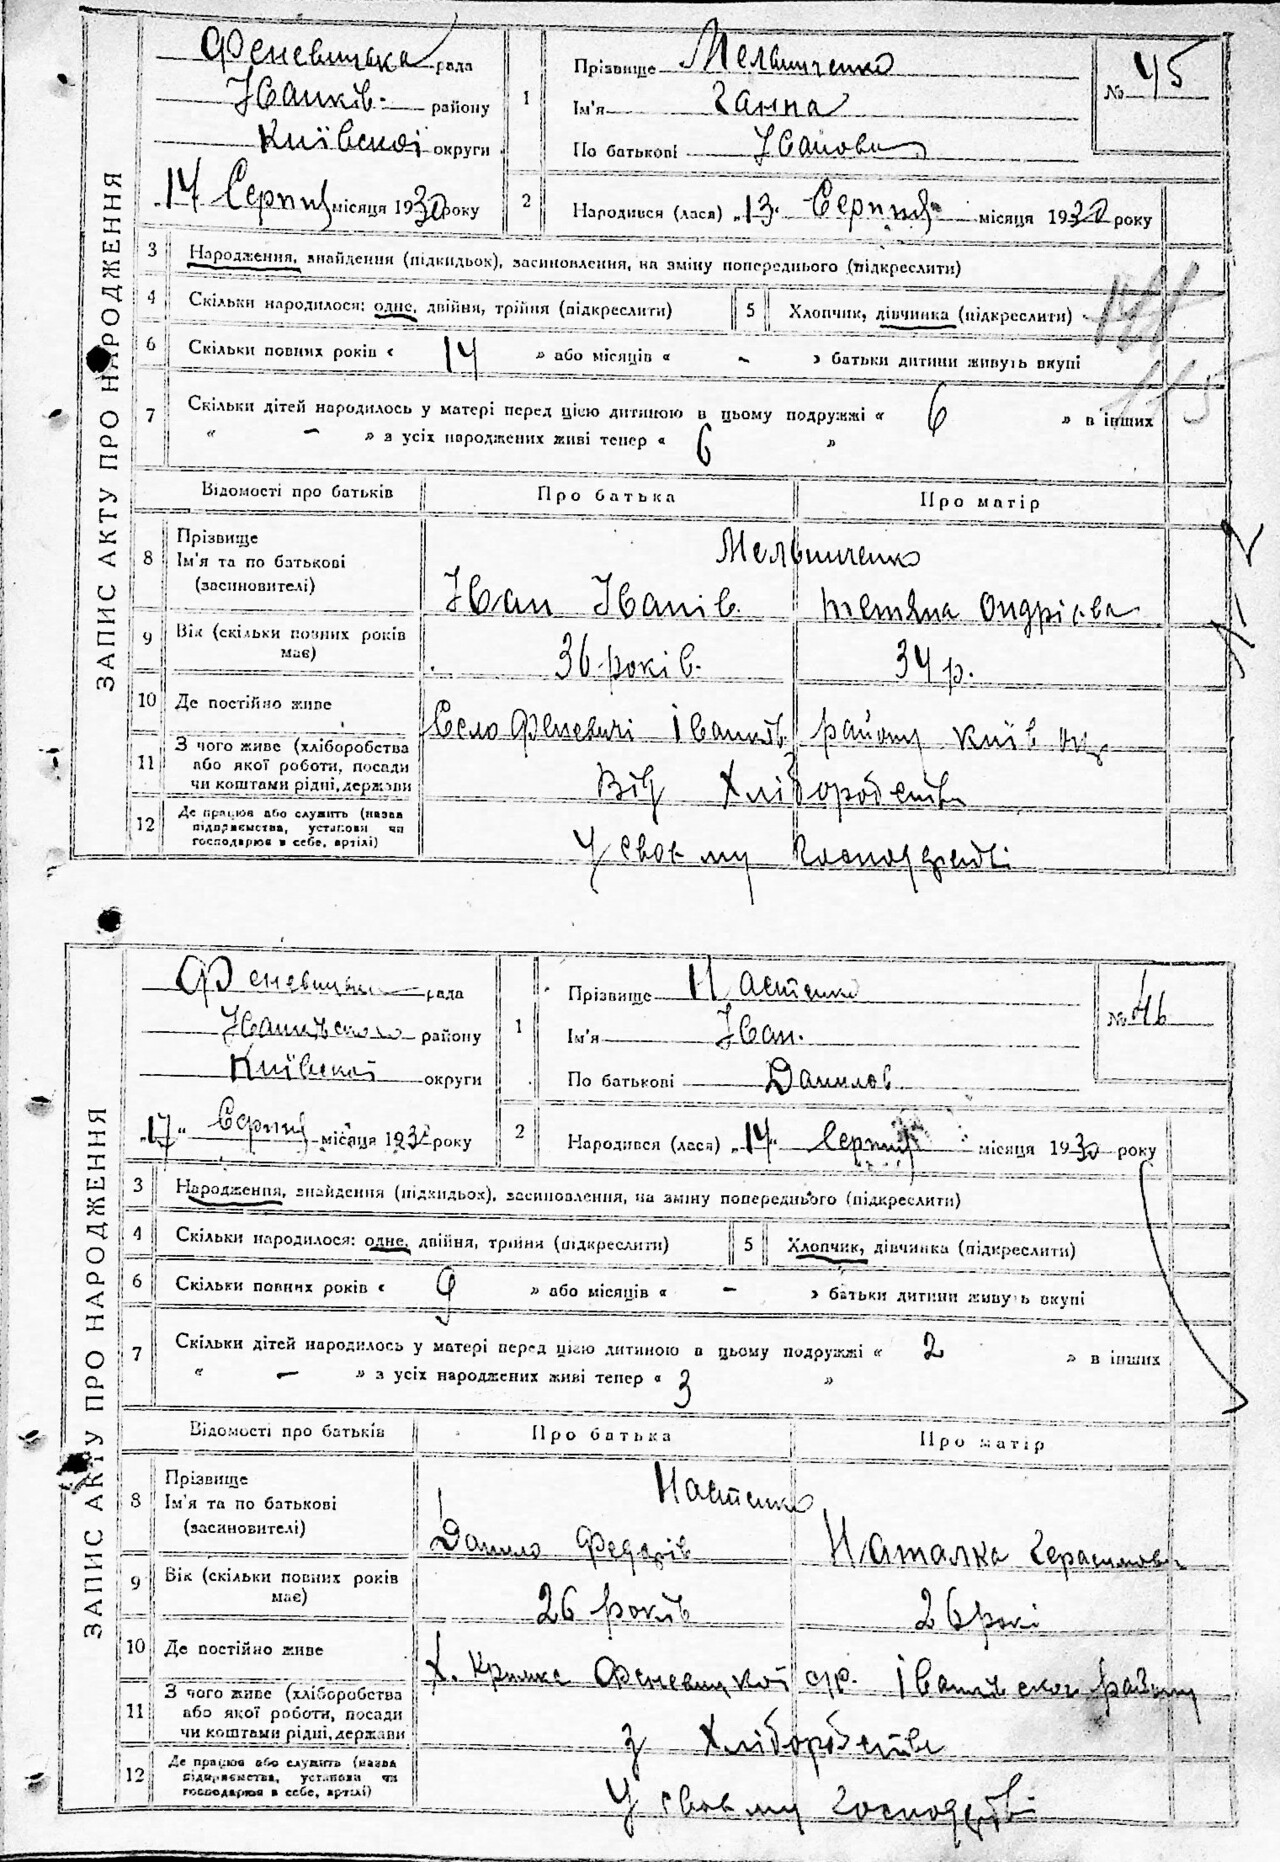 ЗАПИС АКТУ ПРО НАРОДЖЕННЯ
Феневицька рада
Іванків. району
Київської округи
„14 Серпня місяця 1930 року
1 Прізвище Мельниченко
Ім'я Ганна
По батькові Іванова
№ 45
2 Народився (лася) „13" Серпня місяця 1930 року
3 Народження, знайдення (підкидьок), засиновлення, на зміну попереднього (підкреслити)
4 Скільки народилося: одне, двійня, трійня (підкреслити) 5 Хлопчик, дівчинка (підкреслити)
6 Скільки повних років « 14 » або місяців « - » батьки дитини живуть вкупі
7 Скільки дітей народилось у матері перед цією дитиною в цьому подружжі « 6 » в інших
« - » з усіх народжених живі тепер « 6 »
115
Відомості про батьків Про батька Про матір
8 Прізвище
Ім'я та по батькові
(засиновителі)
Мельниченко
Іван Іванів. Тетяна Ондрієва
9 Вік (скільки повних років має) 36 років. 34 р.
10 Де постійно живе Село Феневичі Іванків району Київ окр
11 З чого живе (хліборобства
або якої роботи, посади
чи коштами рідні, держави
Від Хліборобства
12 Де працює або служить (назва
підприємства, установи чи
господарює в себе, артілі)
У своєму господарстві
ЗАПИС АКТУ ПРО НАРОДЖЕННЯ
Феневицька рада
Іванківського району
Київської округи
„17" Серпня місяця 1930 року
1 Прізвище Настенко
Ім'я Іван.
По батькові Данилов
№ 46
2 Народився (лася) „14" Серпня місяця 1930 року
3 Народження, знайдення (підкидьок), засиновлення, на зміну попереднього (підкреслити)
4 Скільки народилося: одне, двійня, трійня (підкреслити) 5 Хлопчик, дівчинка (підкреслити)
6 Скільки повних років « 9 » або місяців « - » батьки дитини живуть вкупі
7 Скільки дітей народилось у матері перед цією дитиною в цьому подружжі « 2 » в інших
« - » з усіх народжених живі тепер « 3 »
Відомості про батьків Про батька Про матір
8 Прізвище
Ім'я та по батькові
(засиновителі)
Настенко
Данило Федорів Наталка Герасимова
9 Вік (скільки повних років має) 26 років 26 рокі
10 Де постійно живе Х. Феневицкої с/р. Іванківского району
11 З чого живе (хліборобства
або якої роботи, посади
чи коштами рідні, держави
З Хліборобства
12 Де працює або служить (назва
підприємства, установи чи
господарює в себе, артілі)
У своєму господарстві